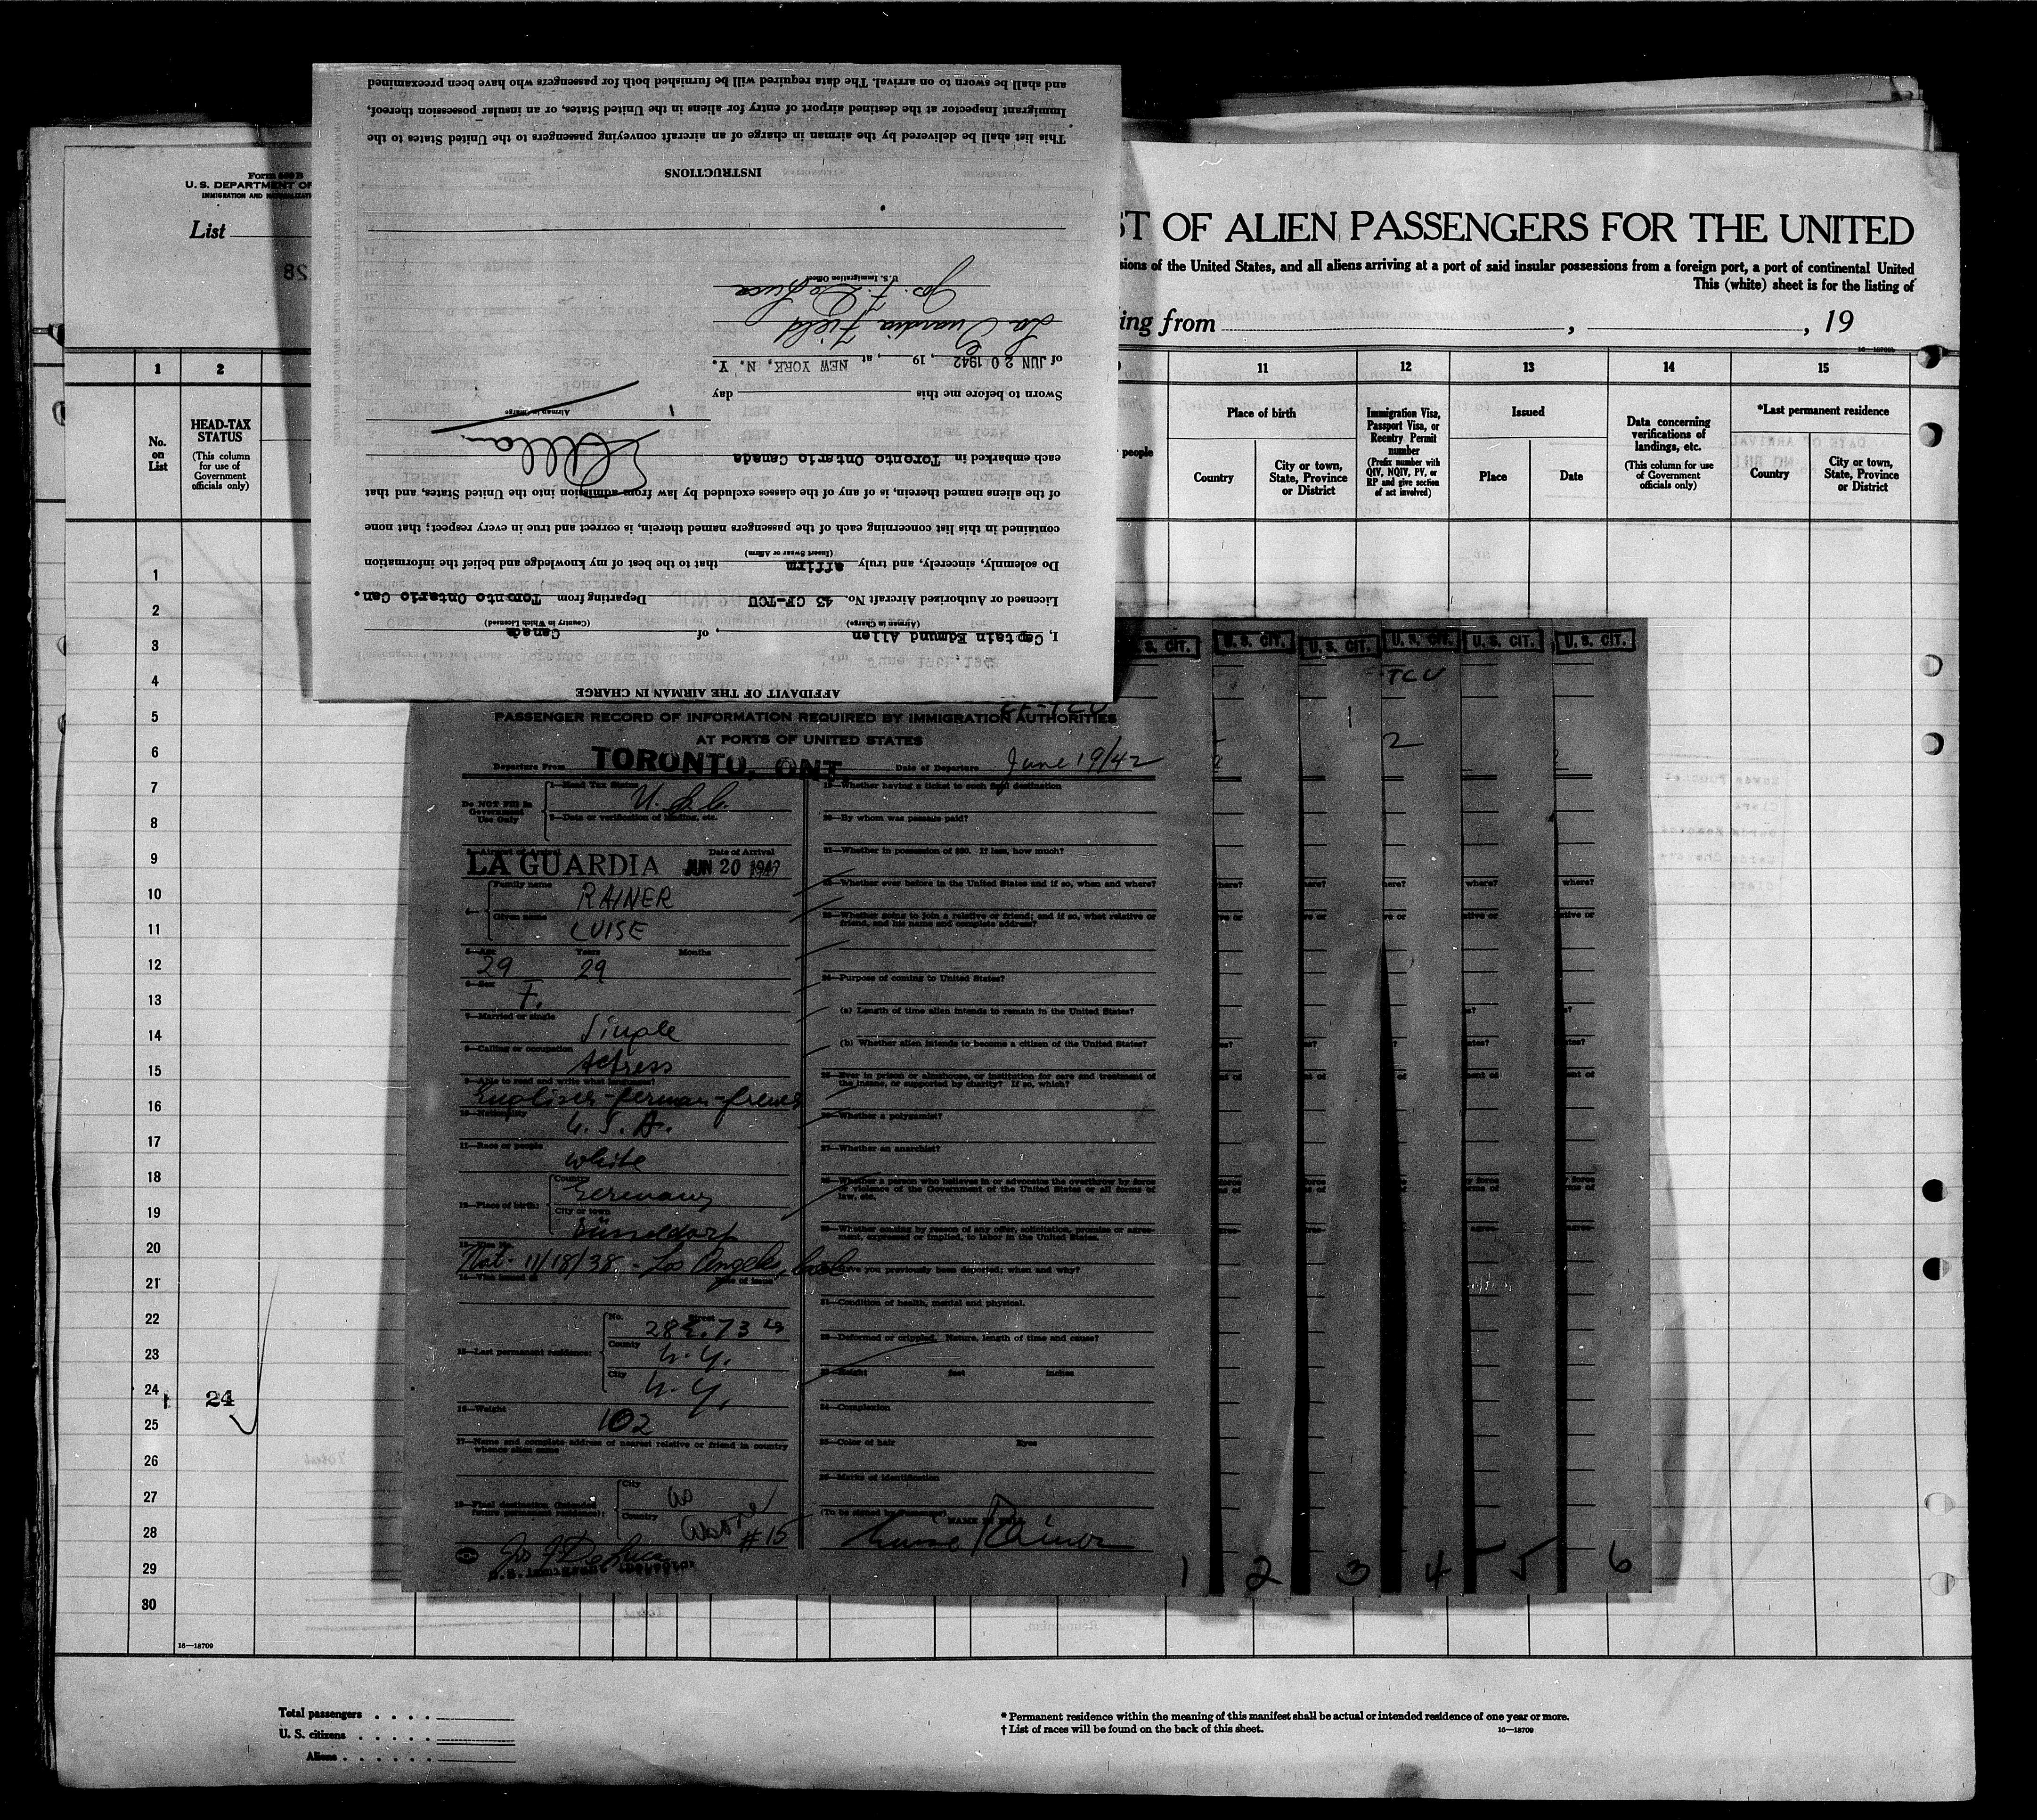 Form 500 B
U. S. DEPARTMENT OF
IMMIGRATION AND
List
ST OF ALIEN PASSENGERS FOR THE UNITED
sions of the United States, and all aliens arriving at a port of said insular possessions from a foreign port, a port of continental United
This (white) sheet is for the listing of
ing from , , 19
16—18709b
1 2 11 12 13 14 15
No. on List
HEAD-TAX STATUS
(This column for use of Government officials only)
people
Place of birth
Country
City or town, State, Province or District
Immigration Visa, Passport Visa, or Reentry Permit number
(Prefix number with QIV, NQIV, PV, or RP and give section of act involved)
Issued
Place
Date
Data concerning verifications of landings, etc.
(This column for use of Government officials only)
*Last permanent residence
Country
City or town, State, Province or District
1
2
3
4
5
6
7
8
9
10
11
12
13
14
15
16
17
18
19
20
21
22
23
24 24
25
26
27
28
29
30
16—18709
Total passengers . . . .
U. S. citizens . . . . .
Aliens . . . . . .
* Permanent residence within the meaning of this manifest shall be actual or intended residence of one year or more.
† List of races will be found on the back of this sheet. 16—18709
AFFIDAVIT OF THE AIRMAN IN CHARGE
I, Captain Edmund Allen , of Canada
(Airman in Charge) (Country in Which Licensed)
Licensed or Authorized Aircraft No. 43 CF-TCU Departing from Toronto Ontario Can.
Do solemnly, sincerely, and truly affirm that to the best of my knowledge and belief the information
(Insert Swear or Affirm)
contained in this list concerning each of the passengers named therein, is correct and true in every respect; that none
of the aliens named therein, is of any of the classes excluded by law from admission into the United States, and that
each embarked in Toronto Ontario Canada
EAllan
Airman in Charge
Sworn to before me this day
of JUN 20 1942, 19 , at NEW YORK, N. Y.
La Guardia Field
Jos. F. DeLuca
U.S. Immigration Officer
INSTRUCTIONS
This list shall be delivered by the airman in charge of an aircraft conveying passengers to the United States to the
Immigrant Inspector at the destined airport of entry for aliens in the United States, or an insular possession thereof,
and shall be sworn to on arrival. The data required will be furnished both for passengers who have been preexamined
CF-TCU
PASSENGER RECORD OF INFORMATION REQUIRED BY IMMIGRATION AUTHORITIES
AT PORTS OF UNITED STATES
Departure From TORONTO, ONT. Date of Departure June 19/42
Do NOT Fill In Government Use Only
1—Head Tax Status U. S. C.
2—Data or verification of landing, etc.
3—Airport of Arrival Date of Arrival
LA GUARDIA JUN 20 1942
4— Family name RAINER
Given name LUISE
5—Age Years Months
29 29
6—Sex F.
7—Married or single Single
8—Calling or occupation Actress
9—Able to read and write what languages?
English-German-french
10—Nationality U. S. A.
11—Race or people white
12—Place of birth: Country Germany
City or town Düsseldorf
13—Visa No.
Nat- 11/18/38 - Los Angeles, Cal
14—Visa issued at Date of issue
15—Last permanent residence: No. Street 28 E. 73
County N. Y.
City N. Y.
16—Weight 102
17—Name and complete address of nearest relative or friend in country
whence alien came
18—Final destination (intended future permanent residence): City as
Country above
#15
Jos F DeLuca
U.S. Immigrant Inspector
19—Whether having a ticket to such final destination
20—By whom was passage paid?
21—Whether in possession of $50. If less, how much?
22—Whether ever before in the United States and if so, when and where?
23—Whether going to join a relative or friend; and if so, what relative or
friend, and his name and complete address?
24—Purpose of coming to United States?
(a) Length of time alien intends to remain in the United States?
(b) Whether alien intends to become a citizen of the United States?
25—Ever in prison or almshouse, or institution for care and treatment of
the insane, or supported by charity? If so, which?
26—Whether a polygamist?
27—Whether an anarchist?
28—Whether a person who believes in or advocates the overthrow by force
or violence of the Government of the United States or all forms of
law, etc.
29—Whether coming by reason of any offer, solicitation, promise or agree-
ment, expressed or implied, to labor in the United States.
30—Have you previously been deported; when and why?
31—Condition of health, mental and physical.
32—Deformed or crippled. Nature, length of time and cause?
33—Height feet inches
34—Complexion
35—Color of hair Eyes
36—Marks of identification
(To be signed by Passenger)
NAME IN FULL
Luise Rainer
U. S. CIT. U. S. CIT. U. S. CIT. U. S. CIT. U. S. CIT. U. S. CIT.
TCU
2
1 2 3 4 5 6